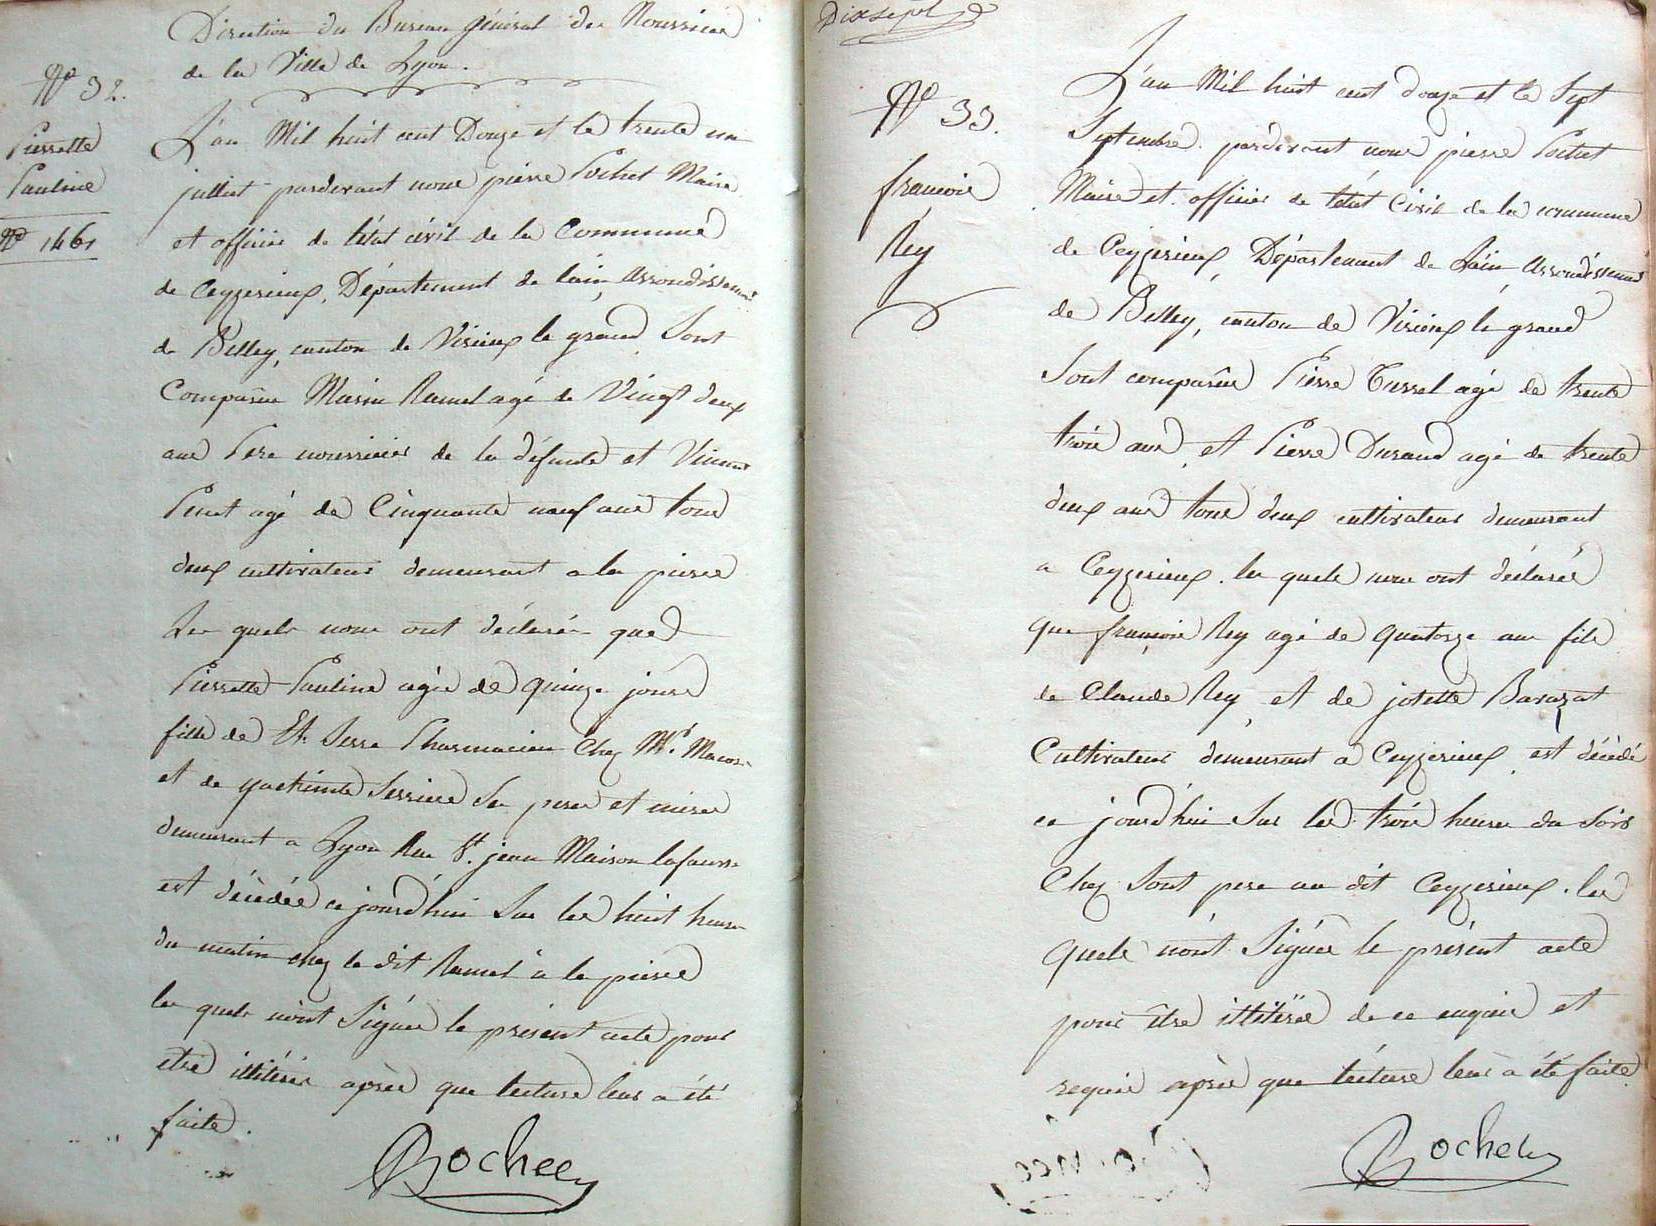 Direction du Bureau général des Nourrices
de la Ville de Lyon.
N° 32.
Pierrette
Pauline
N° 1461
L'an Mil huit cent Douze et le trente un
juillet pardevant nous pierre Pochet Maire
et officier de l'état civil de la Commune
de Ceyzerieux, Département de l'ain, arrondissement
de Belley, canton de Virieux le grand, Sont
Comparus Marin Ramel agé de Vingt deux
ans Pere nourricier de la défunte et Vincent
Penet agé de Cinquante neuf ans tous
deux cultivateurs demeurant a la pierre
Les quels nous ont déclarés que
Pierrette Pauline agée de quinze jours
fille de Et. Serre Pharmacien Chez Mr. Macors
et de Serriere Ses pere et mere
demeurant a Lyon Rue St. jean Maison
est décédée ce jourd'hui Sur les huit heures
du matin chez le dit Ramel à la pierre
les quels n'ont Signés le présent acte pour
etre illitérés après que lecture leur a été
faite.
Rochet
Dixsept
N° 33.
francois
Rey
L'an Mil huit cent douze et le Sept
Septembre pardevant nous pierre Pochet
Maire et officier de l'état Civil de la commune
de Ceyzerieux, Département de L'ain, arrondissement
de Belley, canton de Virieux le grand
Sont comparus Pierre Curral agé de trente
trois ans, et Pierre Durand agé de trente
deux ans tous deux cultivateurs demeurant
a Ceyzerieux. les quels nous ont déclarés
que françois Rey agé de quatorze ans fils
de Claude Rey, et de josette Barazat
Cultivateurs demeurant à Ceyzerieux, est décédé
ce jourd'hui Sur les trois heures du Soir
Chez Sont pere au dit Ceyzerieux. les
quels n'ont Signés le présent acte
pour être illitérés de ce enquis et
requis après que lecture leur a été faite.
Rochet